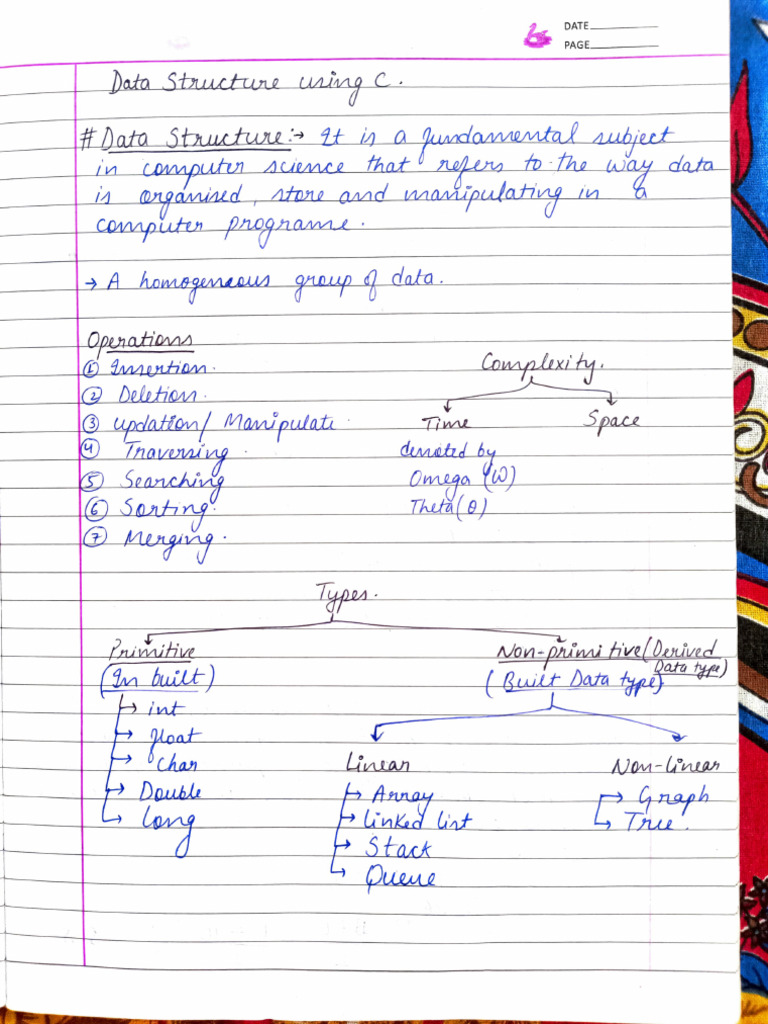 DATE
PAGE
Data Structure using C.
# Data Structure:→ It is a fundamental subject
in computer science that refers to the way data
is organised, store and manipulating in a
computer programe.
→ A homogeneous group of data.
Operations
① Insertion.
② Deletion.
③ Updation/ Manipulate.
④ Traversing.
⑤ Searching
⑥ Sorting.
⑦ Merging.
Complexity.
Time Space
denoted by
Omega (W)
Theta (θ)
Types.
Primitive
(In built)
→ int
→ float
→ Char
→ Double
→ Long
Non-primitive (Derived
Data type)
(Built Data type)
Linear
→ Array
→ Linked list
→ Stack
→ Queue
Non-linear
→ Graph
→ Tree.